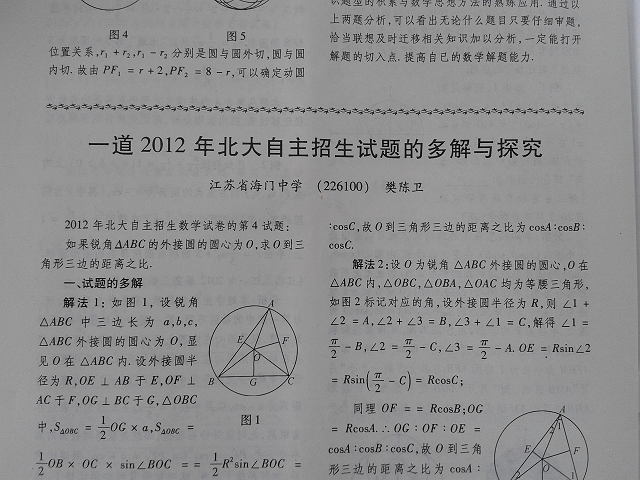 图4
图5
位置关系,r₁+r₂,r₁-r₂分别是圆与圆外切,圆与圆
内切.故由PF₁=r+2,PF₂=8-r,可以确定动圆
识题型的积累与数学思想方法的熟练应用.通过以
上两题分析,可以看出无论什么题目只要仔细审题,
恰当联想及时迁移相关知识加以分析,一定能打开
解题的切入点.提高自己的数学解题能力.
一道2012年北大自主招生试题的多解与探究
江苏省海门中学 (226100) 樊陈卫
2012年北大自主招生数学试卷的第4试题:
如果锐角△ABC的外接圆的圆心为O,求O到三
角形三边的距离之比.
一、试题的多解
解法1:如图1,设锐角
△ABC中三边长为a,b,c,
△ABC外接圆的圆心为O,显
见O在△ABC内.设外接圆半
径为R,OE⊥AB于E,OF⊥
AC于F,OG⊥BC于G,△OBC
中,S△OBC=1/2OG×a,S△OBC=
1/2OB×OC×sin∠BOC==1/2R²sin∠BOC=
A
E
F
O
B
G
C
图1
:cosC,故O到三角形三边的距离之比为cosA:cosB:
cosC.
解法2:设O为锐角△ABC外接圆的圆心,O在
△ABC内,△OBC,△OBA,△OAC均为等腰三角形,
如图2标记对应的角,设外接圆半径为R,则∠1+
∠2=A,∠2+∠3=B,∠3+∠1=C,解得∠1=
π/2-B,∠2=π/2-C,∠3=π/2-A.OE=Rsin∠2
=Rsin(π/2-C)=RcosC;
同理OF==RcosB;OG
=RcosA.∴OG:OF:OE=
cosA:cosB:cosC,故O到三角
形三边的距离之比为cosA:
A
2
1
E
F
O